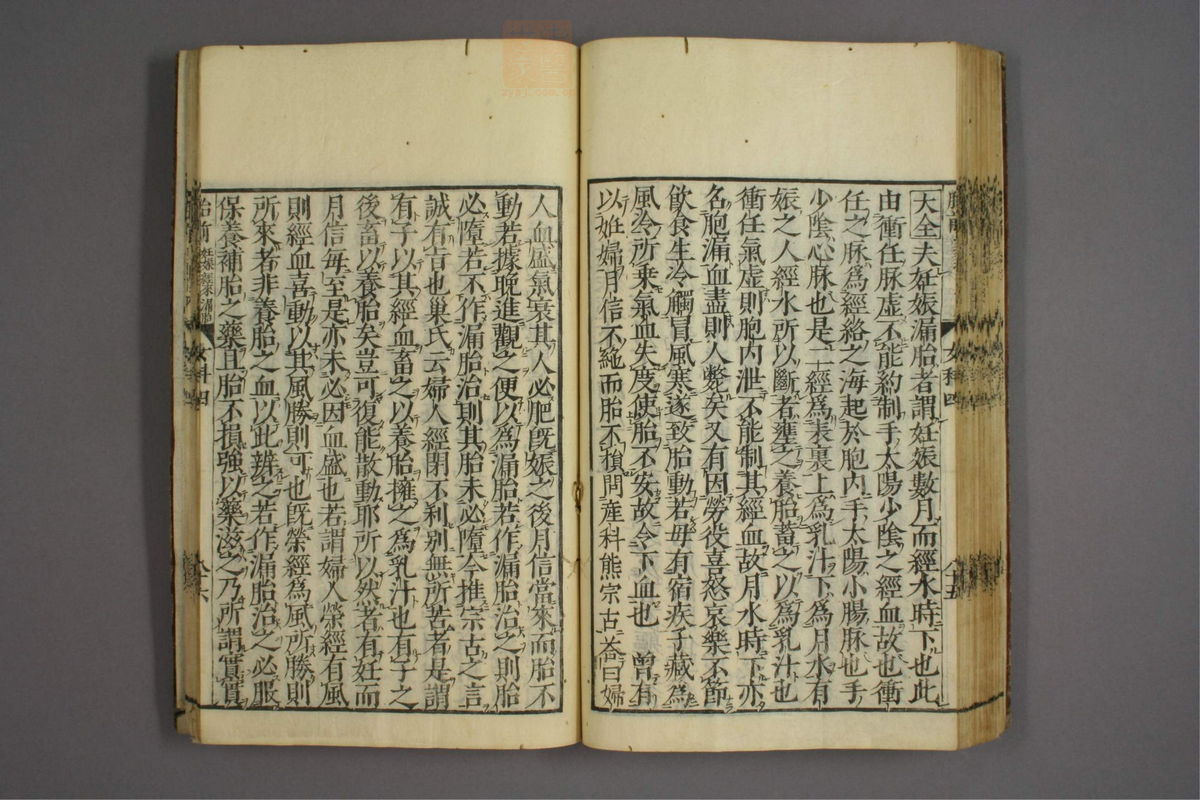 大全夫妊娠漏胎者謂妊娠數月而經水時下也此
由衝任脉虛不能約制手太陽少陰之經血故也衝
任之脉爲經絡之海起於胞內手太陽小腸脉也手
少陰心脉也是二經爲表裏上爲乳汁下爲月水有
娠之人經水所以斷者壅之養胎蓄之以爲乳汁也
衝任氣虛則胞內泄不能制其經血故月水時下亦
名胞漏血盡則人斃矣又有因勞役喜怒哀樂不節
飲食生冷觸冒風寒遂致胎動若毋有宿疾子藏爲
風冷所乘氣血失度使胎不安故令下血也 曾有
以妊婦月信不絶而胎不損問産科熊宗古荅曰婦
人血盛氣衰其人必肥旣娠之後月信當來而胎不
動若據晚進觀之便以爲漏胎若作漏胎治之則胎
必墮若不作漏胎治則其胎未必墮今推宗古之言
誠有旨也巢氏云婦人經閉不利别無所苦者是謂
有子以其經血畜之以養胎擁之爲乳汁也有子之
後畜以養胎矣豈可復能散動耶所以然者有妊而
月信每至是亦未必因血盛也若謂婦人榮經有風
則經血喜動以其風勝則可也旣榮經爲風所勝則
所來者非養胎之血以此辨之若作漏胎治之必服
保養補胎之藥且胎不損強以藥滋之乃所謂實實
胎前
女科四